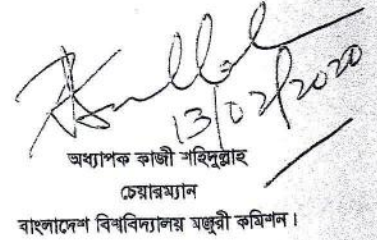 13/02/2020
অধ্যাপক কাজী শহিদুল্লাহ
চেয়ারম্যান
বাংলাদেশ বিশ্ববিদ্যালয় মঞ্জুরী কমিশন।